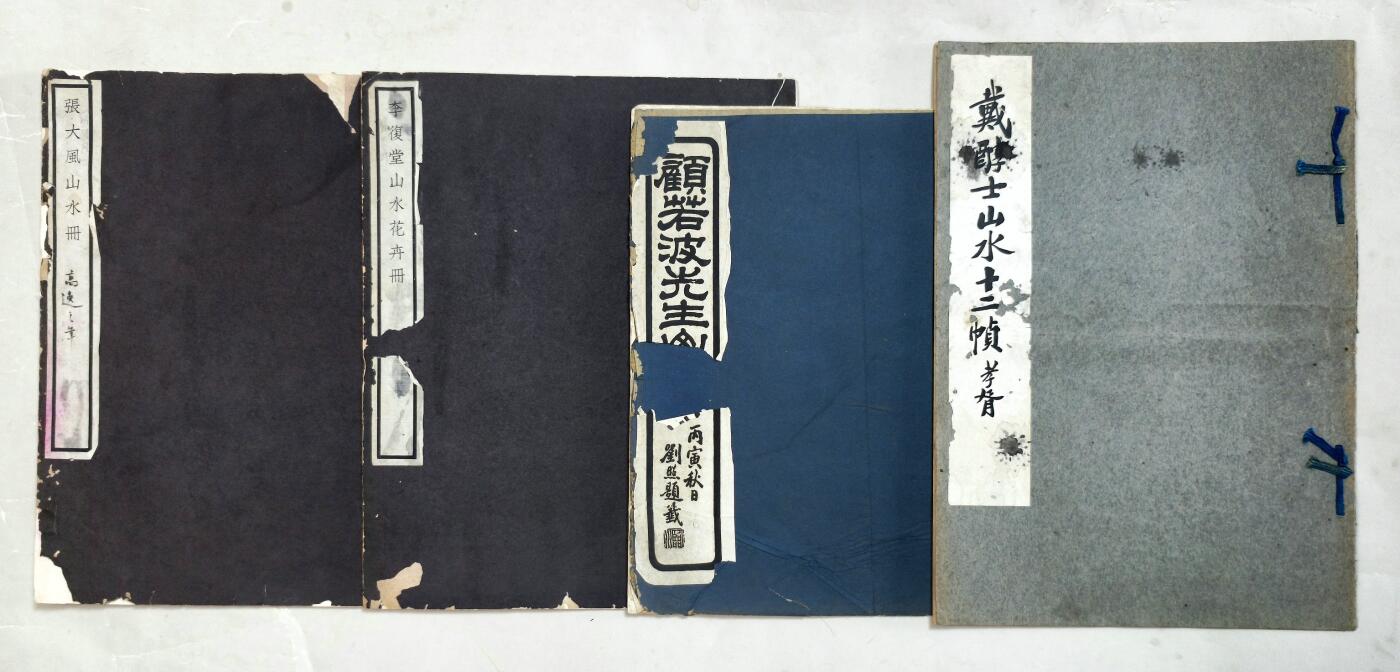 張大風山水冊
高速之筆
李復堂山水花卉冊
顧若波先生
丙寅秋日
劉照題籤
戴醇士山水十二幀
孝胥